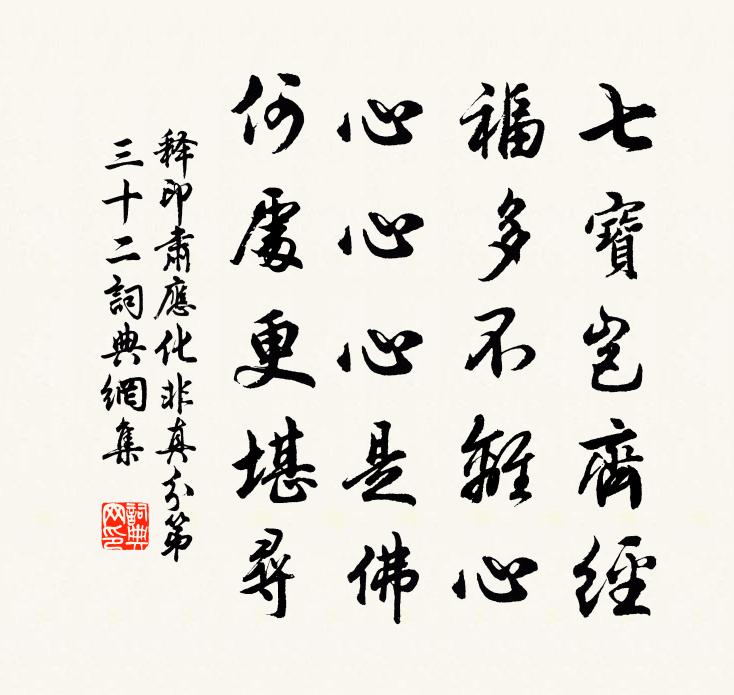 七寶豈齊經
福多不離心
心心心是佛
何處更堪尋
释印肃應化非真分第
三十二詞典網集
詞典
网印